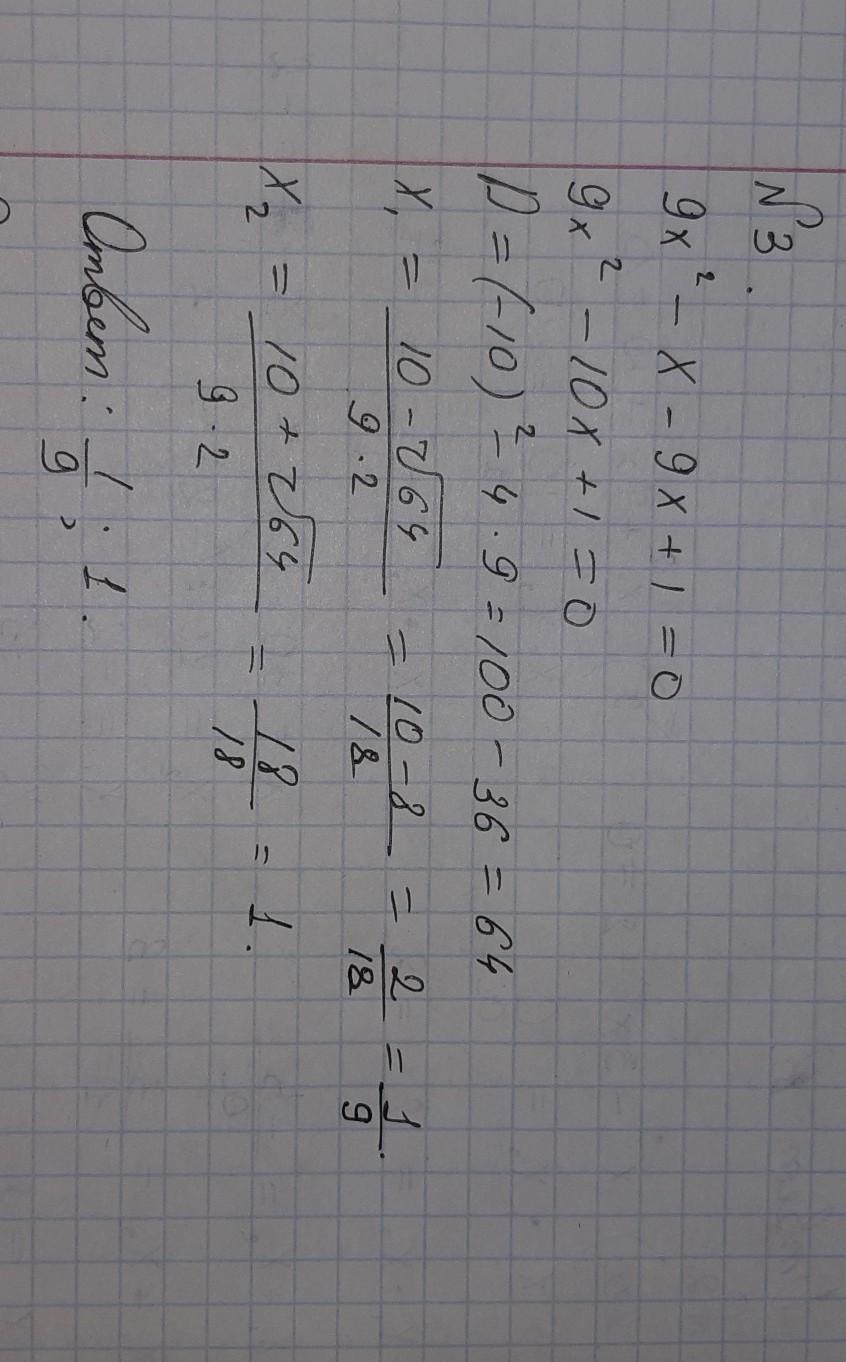 №3.
9x² - x - 9x + 1 = 0
9x² - 10x + 1 = 0
D = (-10)² - 4 · 9 = 100 - 36 = 64
x₁ = (10 - √64)/(9 · 2) = (10 - 8)/18 = 2/18 = 1/9.
x₂ = (10 + √64)/(9 · 2) = 18/18 = 1.
Ответ: 1/9; 1.